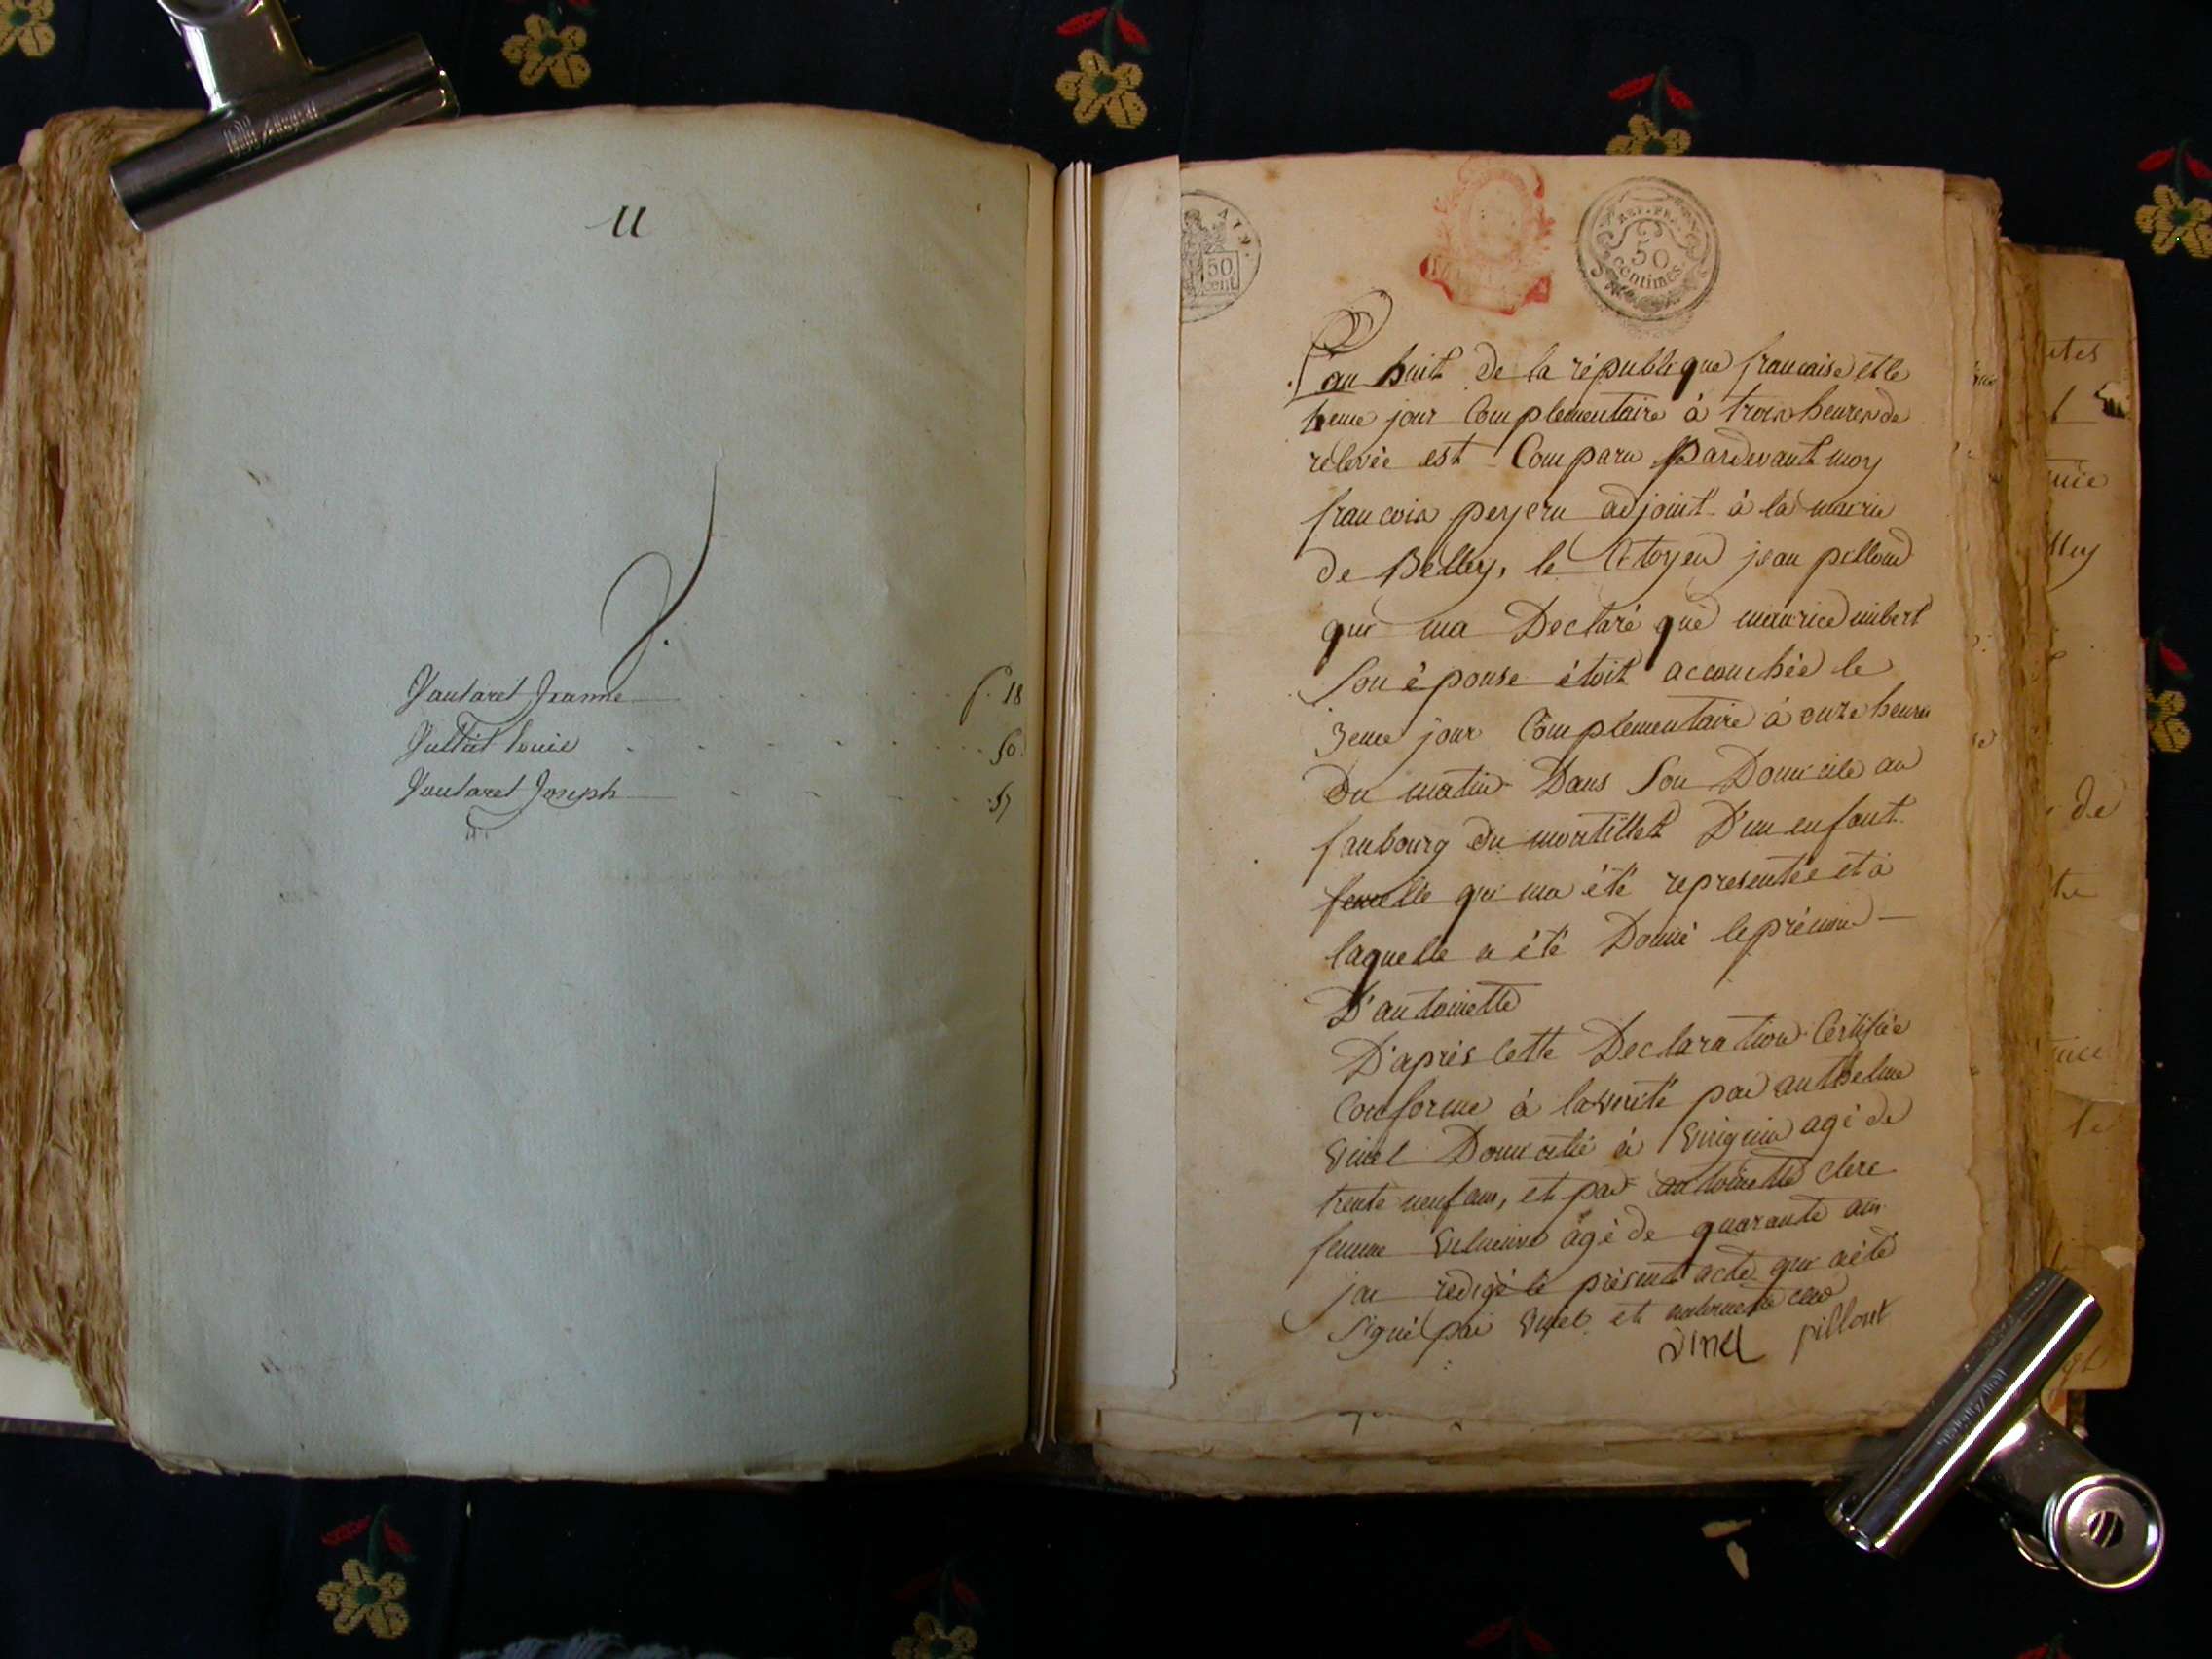 U
V.
Vautaret Jeanne f. 18
Vuttait Louis 50
Vautaret Joseph 57
AIN.
50
cent
REP. FRA.
50
centimes
L'an huit de la république francaise et le
jour Complementaire à trois heures de
relevée est Comparu Pardevant moy
francois peyseru adjoint à la mairie
de Belley, le Citoyen jean pilloud
qui ma Declaré que maurice imbert
Son épouse étoit accouchée le
3eme jour Complementaire à onze heures
Du matin Dans Son Domicile au
faubourg du mortillet D'un enfant
femelle qui ma été representée et à
laquelle a été Donné le prénom
D'antoinette
D'après Cette Declaration Certifiée
Conforme à la verité par anthelme
vinet Domicilié à Virignin agé de
trente neuf ans, et par antoinette clerc
femme agé de quarante ans
jai redigé le présent acte qui a été
Signé par vinet et antoinette clerc
vinet pillout